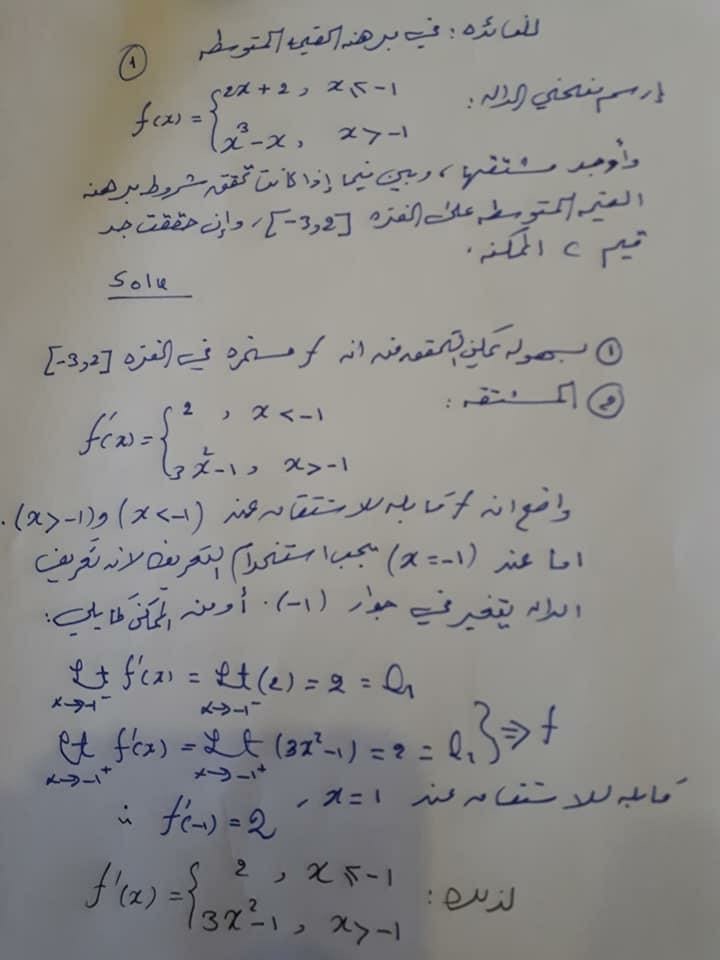 للفائده: في برهنه القيم المتوسطه
①
إرسم منحني الداله: f(x) = { 2x + 2 , x ⩽ -1
x³ - x , x > -1
وأوجد مشتقها، وبين فيما إذا كانت تحقق شروط برهنه
القيم المتوسطه على الفتره [-3,2]، وإن حققت جد
قيم c الممكنه.
Solu
① بسهوله يمكن التحقق من ان f مستمره في الفتره [-3,2]
② المشتقه:
f'(x) = { 2 , x < -1
3x² - 1 , x > -1
واضح ان f قابله للاشتقاق عند (x < -1) و (x > -1).
اما عند (x = -1) يجب استخدام التعريف لانه تعريف
الداله يتغير في جوار (-1). أو من الممكن كما يلي:
Lt x→-1⁻ f'(x) = Lt x→-1⁻ (2) = 2 = l₁
Lt x→-1⁺ f'(x) = Lt x→-1⁺ (3x² - 1) = 2 = l₁ } ⇒ f
قابله للاشتقاق عند x = 1,
∴ f'(-1) = 2
لذلك: f'(x) = { 2 , x ⩽ -1
3x² - 1 , x > -1